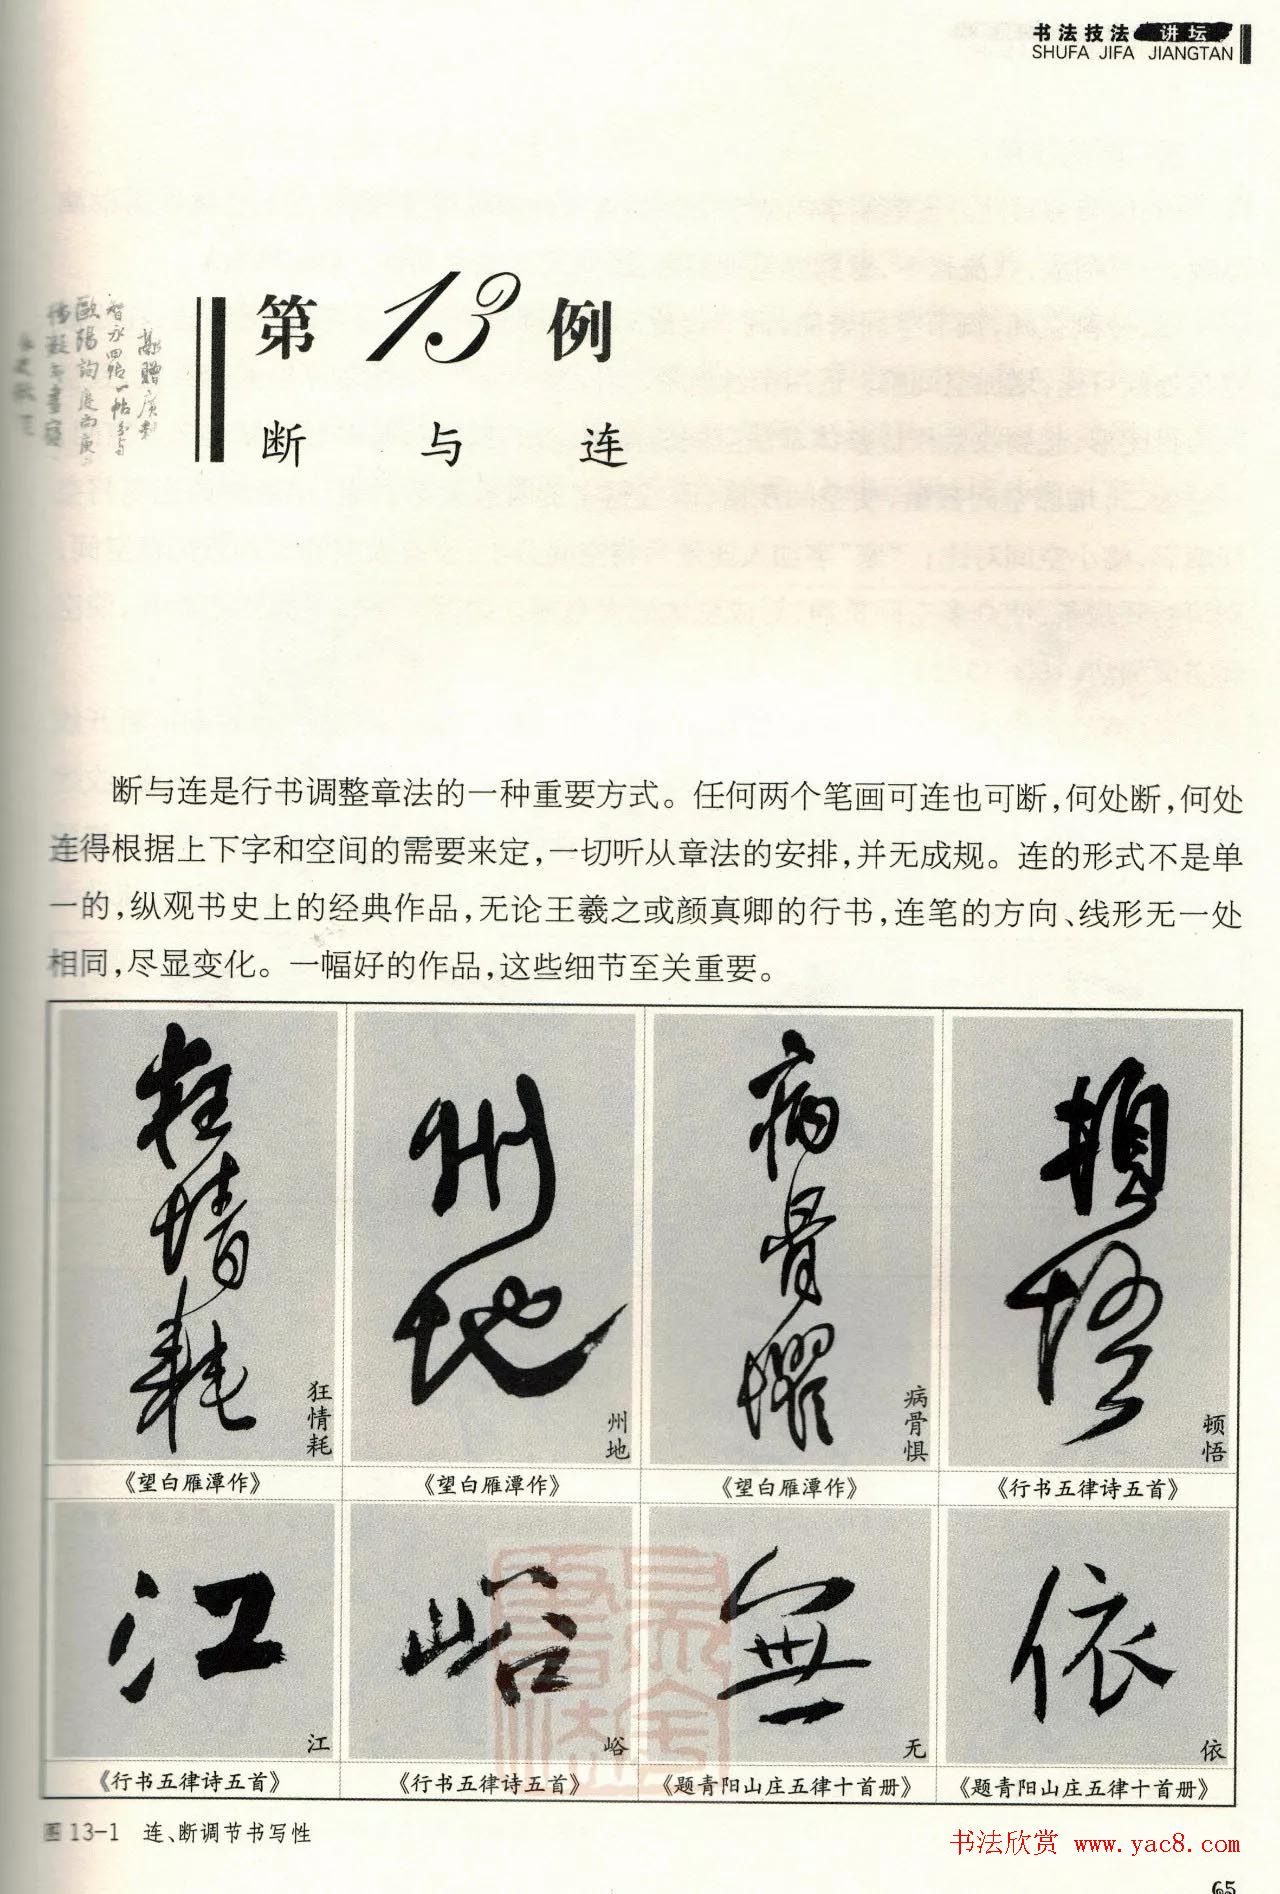 书法技法 讲坛
SHUFA JIFA JIANGTAN
第13例
断与连
断与连是行书调整章法的一种重要方式。任何两个笔画可连也可断，何处断，何处
连得根据上下字和空间的需要来定，一切听从章法的安排，并无成规。连的形式不是单
一的，纵观书史上的经典作品，无论王羲之或颜真卿的行书，连笔的方向、线形无一处
相同，尽显变化。一幅好的作品，这些细节至关重要。
狂情耗
狂情耗
《望白雁潭作》
州地
州地
《望白雁潭作》
病骨惧
病骨惧
《望白雁潭作》
頓悟
顿悟
《行书五律诗五首》
江
江
《行书五律诗五首》
峪
峪
《行书五律诗五首》
無
无
《题青阳山庄五律十首册》
依
依
《题青阳山庄五律十首册》
图13-1 连、断调节书写性
书法欣赏 www.yac8.com
65